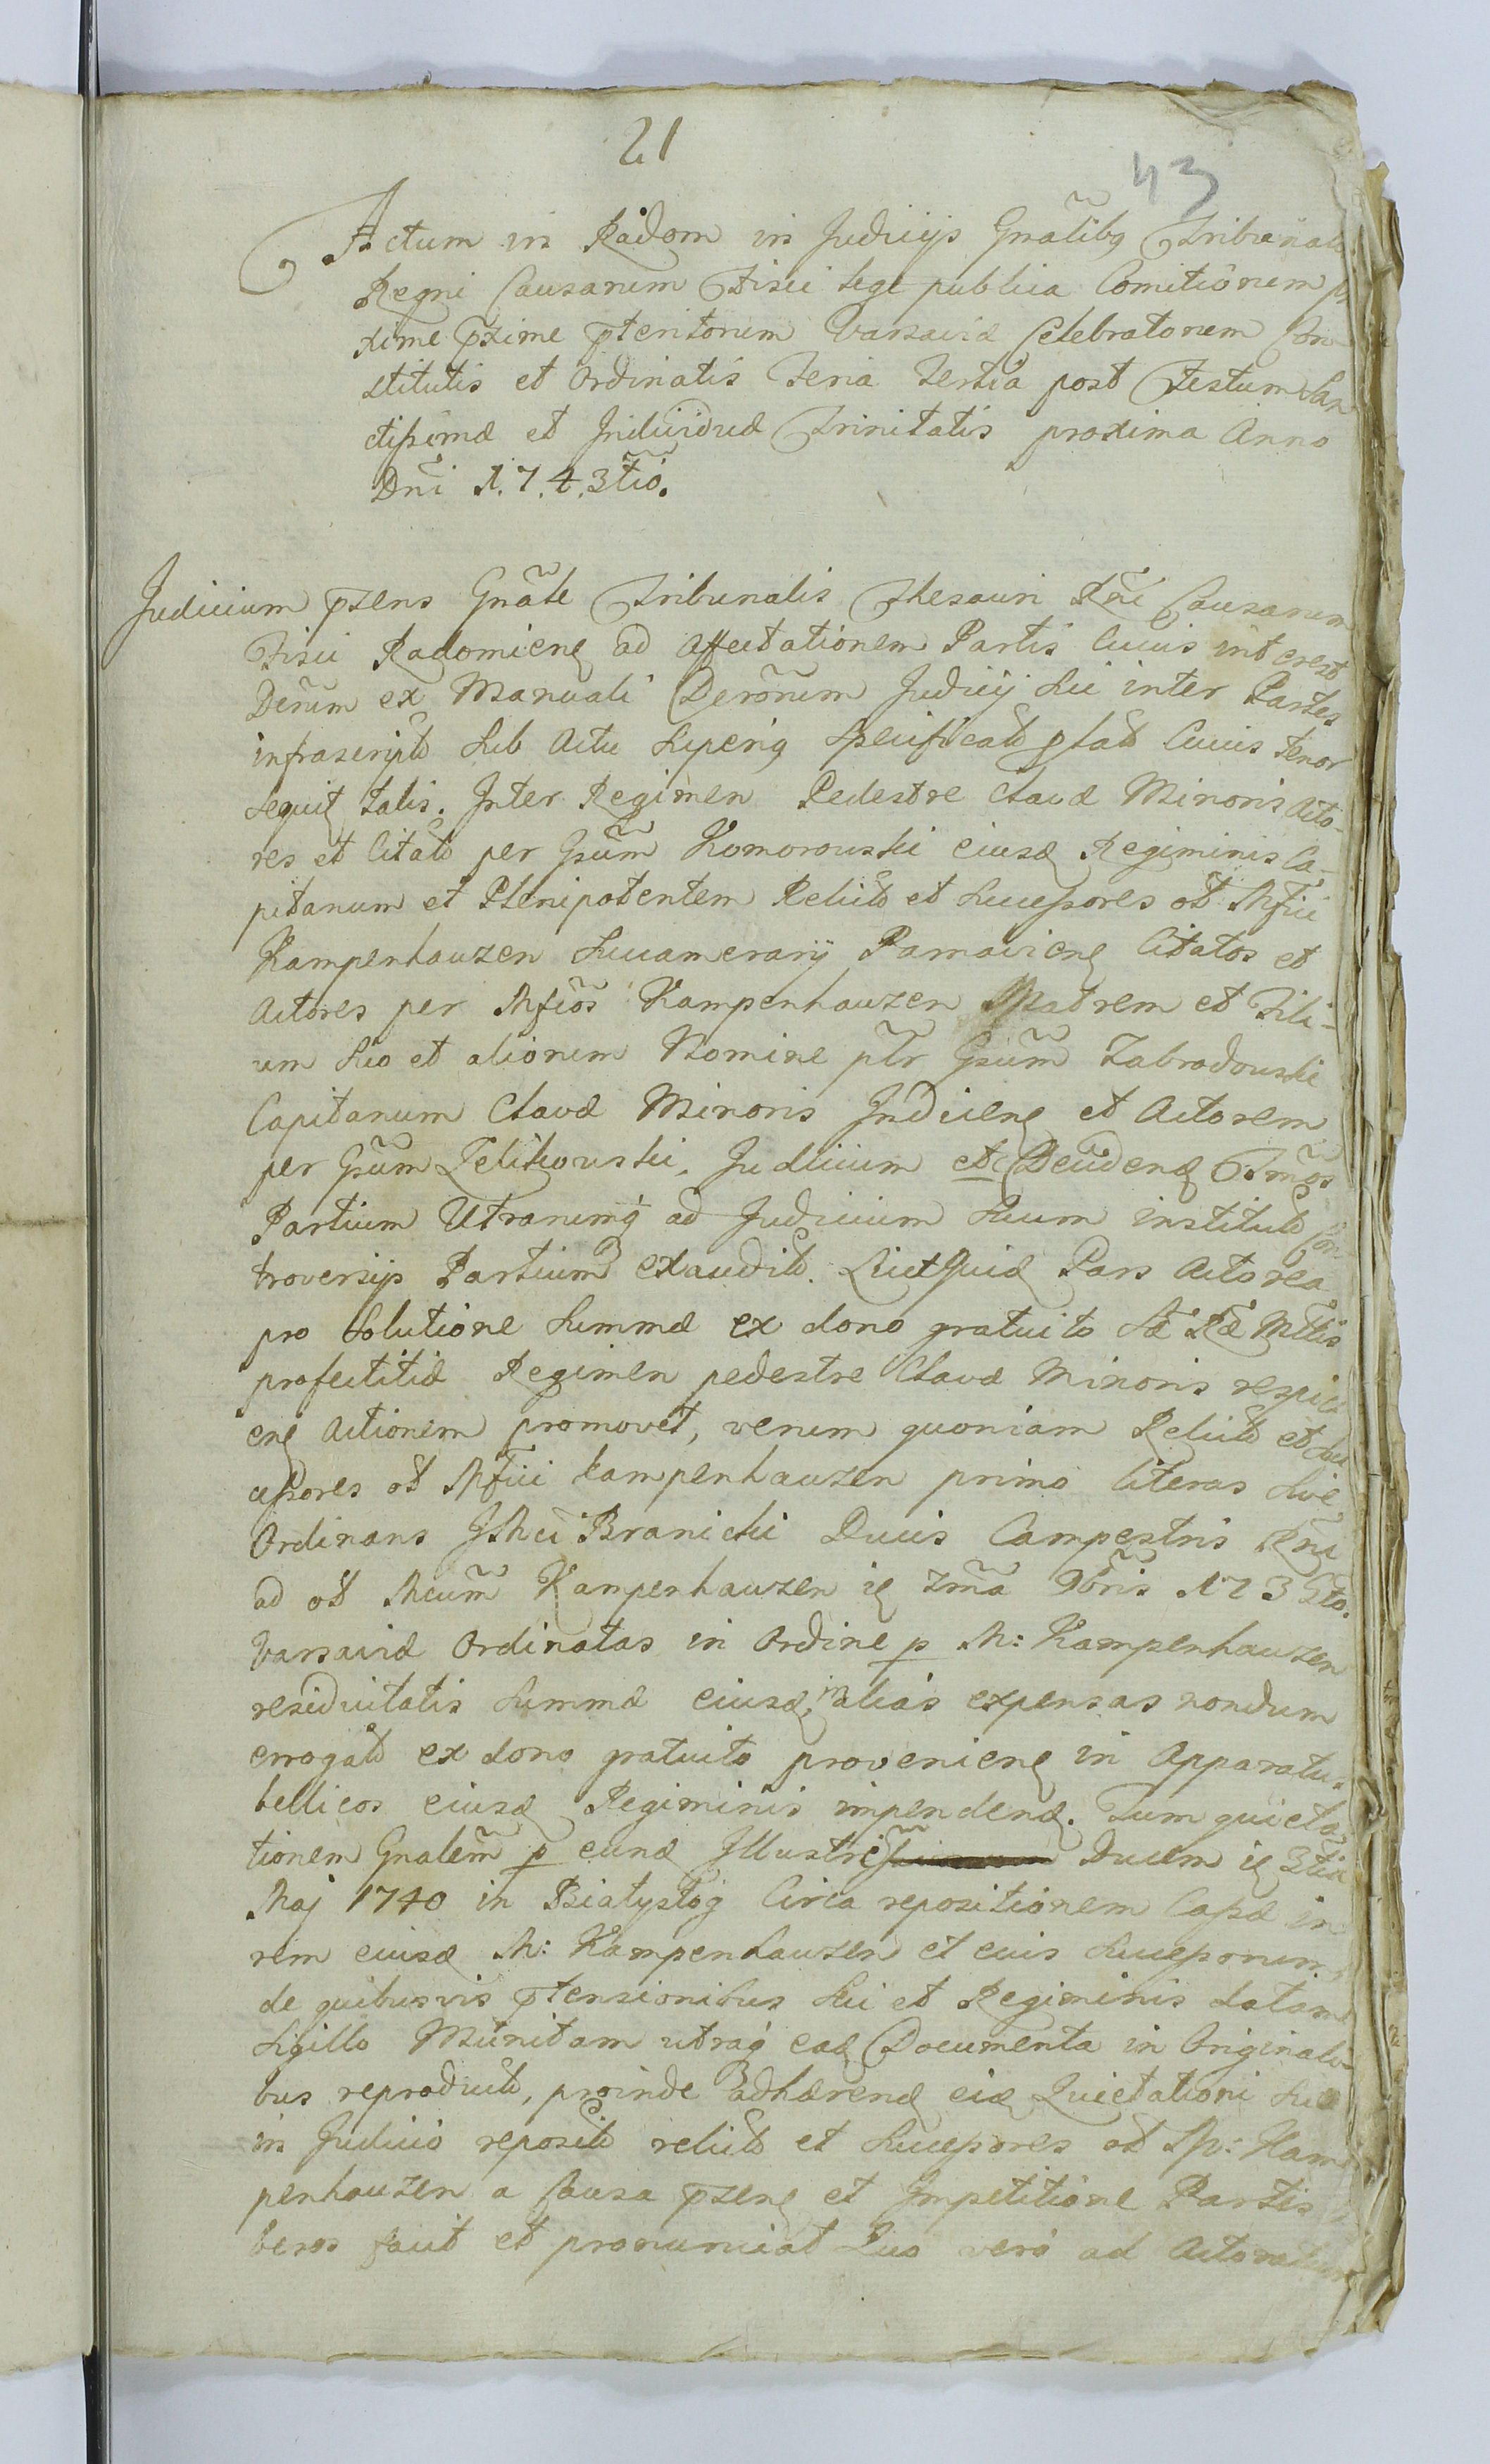 21
43
Actum in Radom in Judicijs Gnãlibq Tribunal
Regni Causarum Fisci lege publica Comitiorum
xime pxime pteritorum Varsaviæ Celebratorum Con
stitutis et Ordinatis Feria Tertia post Festum San
ctissimæ et Individuæ Trinitatis proxima Anno
Dñi 1.7.4.3tio.
Judicium pzens Gnãle Tribunalis Thesauri Rñi Causarum
Fisci Radomienẽ ad Affectationem Partis Cuius interest
Decrũm ex Manuali Decrõrum Judicij Sui inter Partes
infrascript Sub Actu Superiq Specificatt Cuius tenor
sequit talis. Inter Regimen Pedestre Clavæ Minoris Acto-
res et Citatt per Gsũm Komorowski eiusd Regiminis Ca-
pitanum et Plenipotentem Relict et Successores ol Mfici
Kampenhauzen Succamerarij Parnavienẽ Citatos et
Actores per Mficos Kampenhauzen Matrem et Fili-
um Suo et aliorum Nomine ptr Gsũm Zabrodowski
Capitanum Clavæ Minoris Inducenẽ et Actorem
per Gsũm Zelikowski. Judicium et Decidend Tmos
Partium Utrarumq ad Judicium Suum institutt Con-
troversijs Partium exauditt. Licet quid Pars Actorea
pro Solutione Summæ ex dono gratuito Sæ Ræ Mttis
profectitiæ Regimen pedestre Clavæ Minoris respici
enẽ Actionem promovet, verum quoniam Relict et Suc
cessores ol Mfici kampenhauzen primo literas Sive
Ordinans Branicki Ducis Campestris Rñi
ad ol Kampenhauzen 9bris
Varsaviæ Ordinatas in Ordine p M: Kampenhauzen
residuitatis Summæ eiusd in alias expensas nondum
errogatt ex dono gratuito provenienẽ in Apparatus
bellicos eiusd Regiminis impendend. Tum quieta
tionem Gnalem p eund Illustriss Ducem 3tia
Maj 1740 in Białystog Circa repositionem Cassæ in
rem eiusd M: Kampenhauzen et euis Successorum
de quibusvis ptensionibus Sui et Regiminis datam
Sigillo Munitam utraq ead Documenta in Originali
bus reproductt, proinde adhærend eid Quietationi Suæ
in Judicio repositt relict et Successores ol Sp: Kam
penhauzen a Causa pzenẽ et Impetitione Partis
beros facit et pronunciat Quo vero ad Actoratum